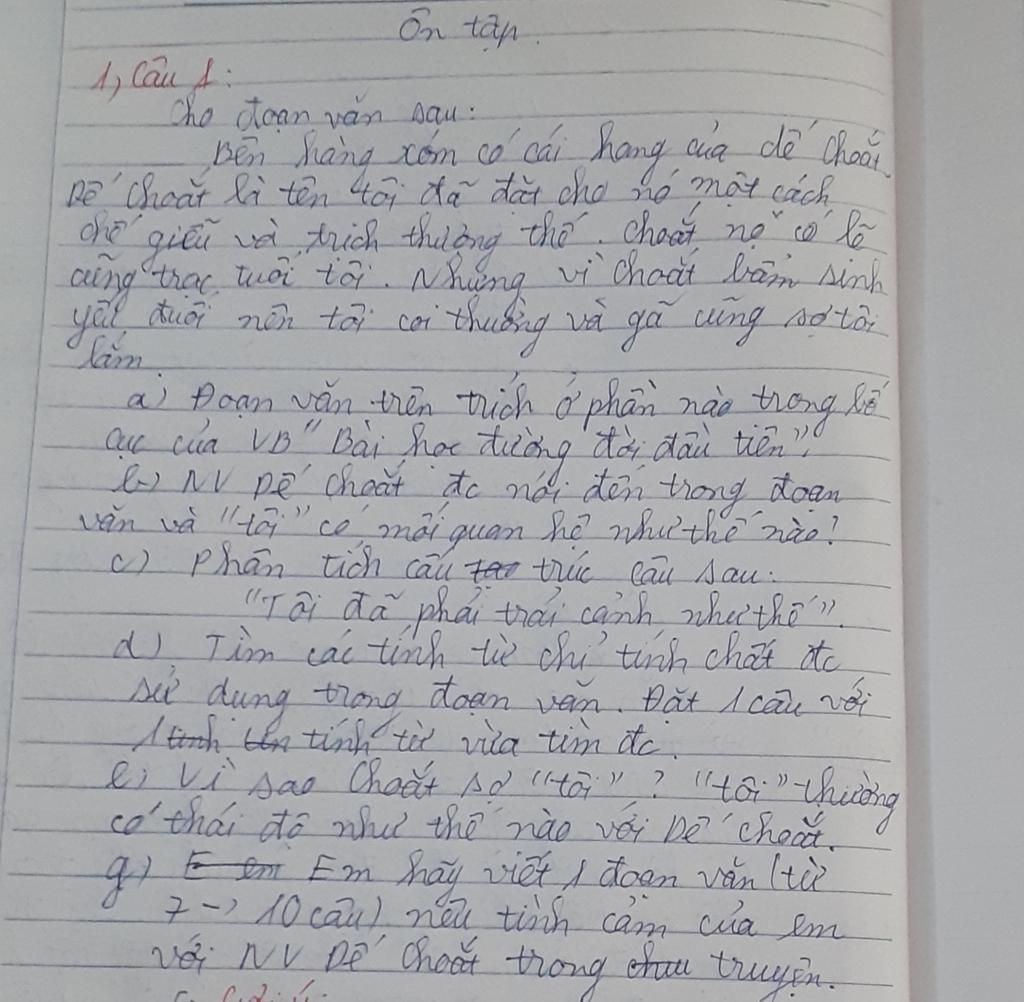 Ôn tập.
1, Câu 1:
Cho đoạn văn sau:
Bên hàng xóm có cái hang của dế choắt.
Dế choắt là tên tôi đã đặt cho nó một cách
chế giễu và trịch thượng thế. Choắt nọ có lẽ
cũng trạc tuổi tôi. Nhưng vì choắt bẩm sinh
yếu đuối nên tôi coi thường và gã cũng sợ tôi
lắm.
a) Đoạn văn trên trích ở phần nào trong bố
cục của VB "Bài học đường đời đầu tiên",
b) NV Dế choắt đc nói đến trong đoạn
văn và "tôi" có mối quan hệ như thế nào?
c) Phân tích cấu trúc câu sau:
"Tôi đã phải trải cảnh như thế".
d) Tìm các tính từ chỉ tính chất đc
sử dụng trong đoạn văn. Đặt 1 câu với
1 tính từ vừa tìm đc.
e) Vì sao Choắt sợ "tôi"? "tôi" thường
có thái độ như thế nào với Dế choắt.
g) Em hãy viết 1 đoạn văn (từ
7 -> 10 câu) nêu tình cảm của em
với NV Dế Choắt trong truyện.